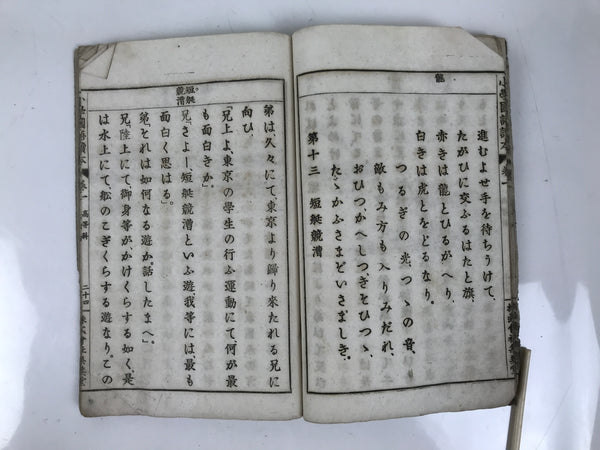 龍
進むよせ手を待ちうけて、
たがひに交ふるはたと旗、
赤きは龍とひるがへり、
白きは虎とをどるなり。
つるぎの光、つゝの音、
敵もみ方も入りみだれ、
おひつ、かへしつ、きそひつゝ、
たゝかふさまどいさましき。
第十三 短艇競漕
短艇。
競漕
弟は、久々にて、東京より歸り來たれる兄に
向ひ、
「兄上よ、東京の學生の行ふ運動にて、何が最
も面白きか。」
兄「さよー、短艇競漕といふ遊、我等には、最も
面白く思はる。」
弟「それは如何なる遊か。話したまへ。」
兄「陸上にて、御身等が、かけくらする如く、是
は水上にて、舩のこぎくらする遊なり。この
小學國語讀本 卷一 高等科
二十四